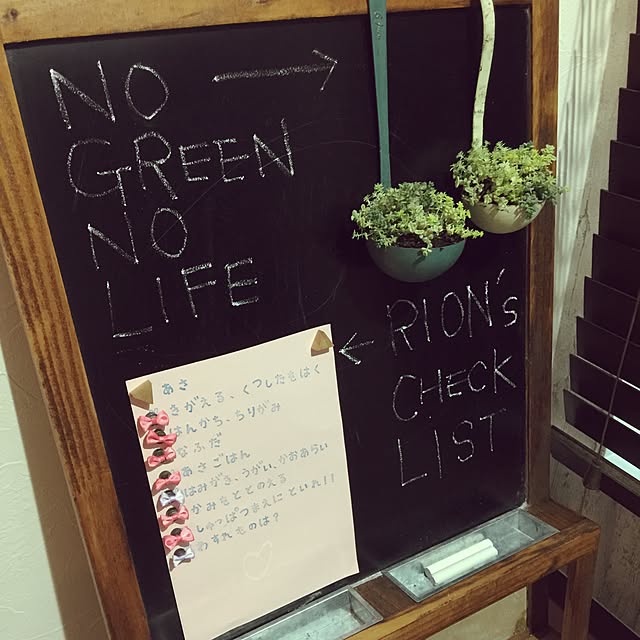 NO
GREEN
NO
LIFE
RION's
CHECK
LIST
あさ
きがえる、くつしたをはく
はんかち、ちりがみ
なふだ
あさごはん
はみがき、うがい、かおあらい
かみをととのえる
しゅっぱつまえにといれ!!
わすれものは?